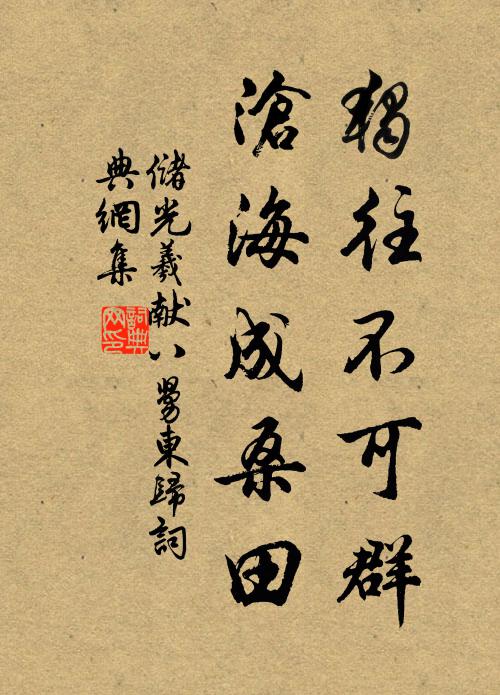 獨往不可群
滄海成桑田
儲光羲献八舅東歸詞
典網集
詞典网印